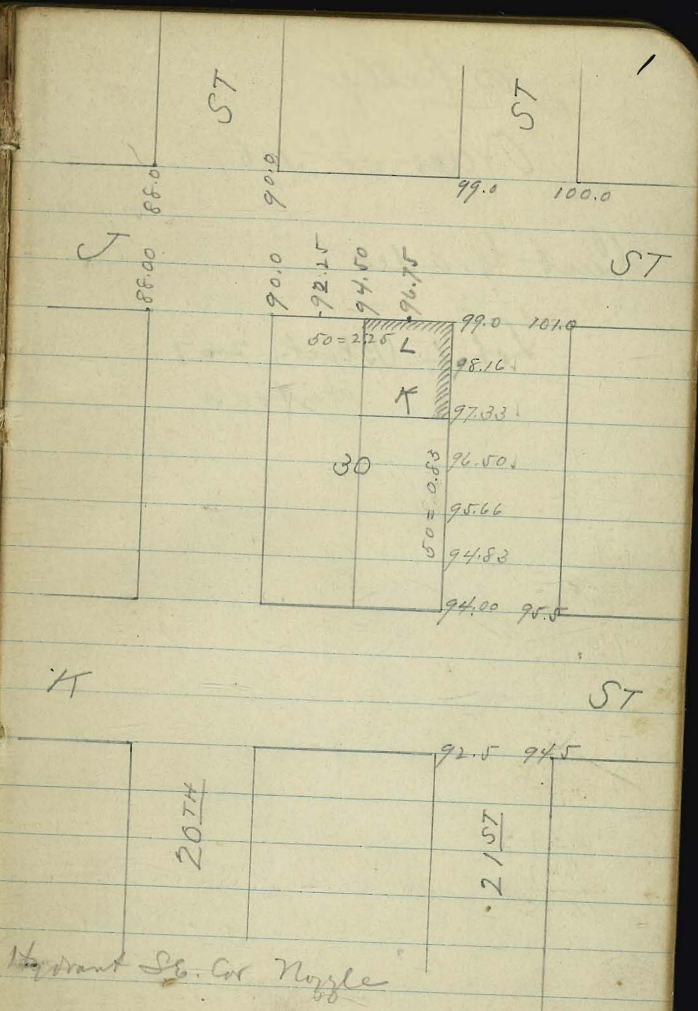 1
ST ST
88.0 90.0 99.0 100.0
J ST
88.00 90.0 92.25 94.50 96.75
99.0 101.0
50 = 2.25 L
98.16
K 97.33
30 96.50
50 = 0.83
95.66
94.83
94.00 95.5
K ST
92.5 94.5
20TH 21ST
Hydrant SE. Cor Nozzle